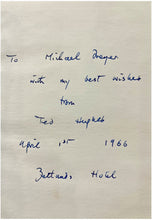 To Michael Dreyer
with my best wishes
from
Ted Hughes
April 1st 1966
Hotel